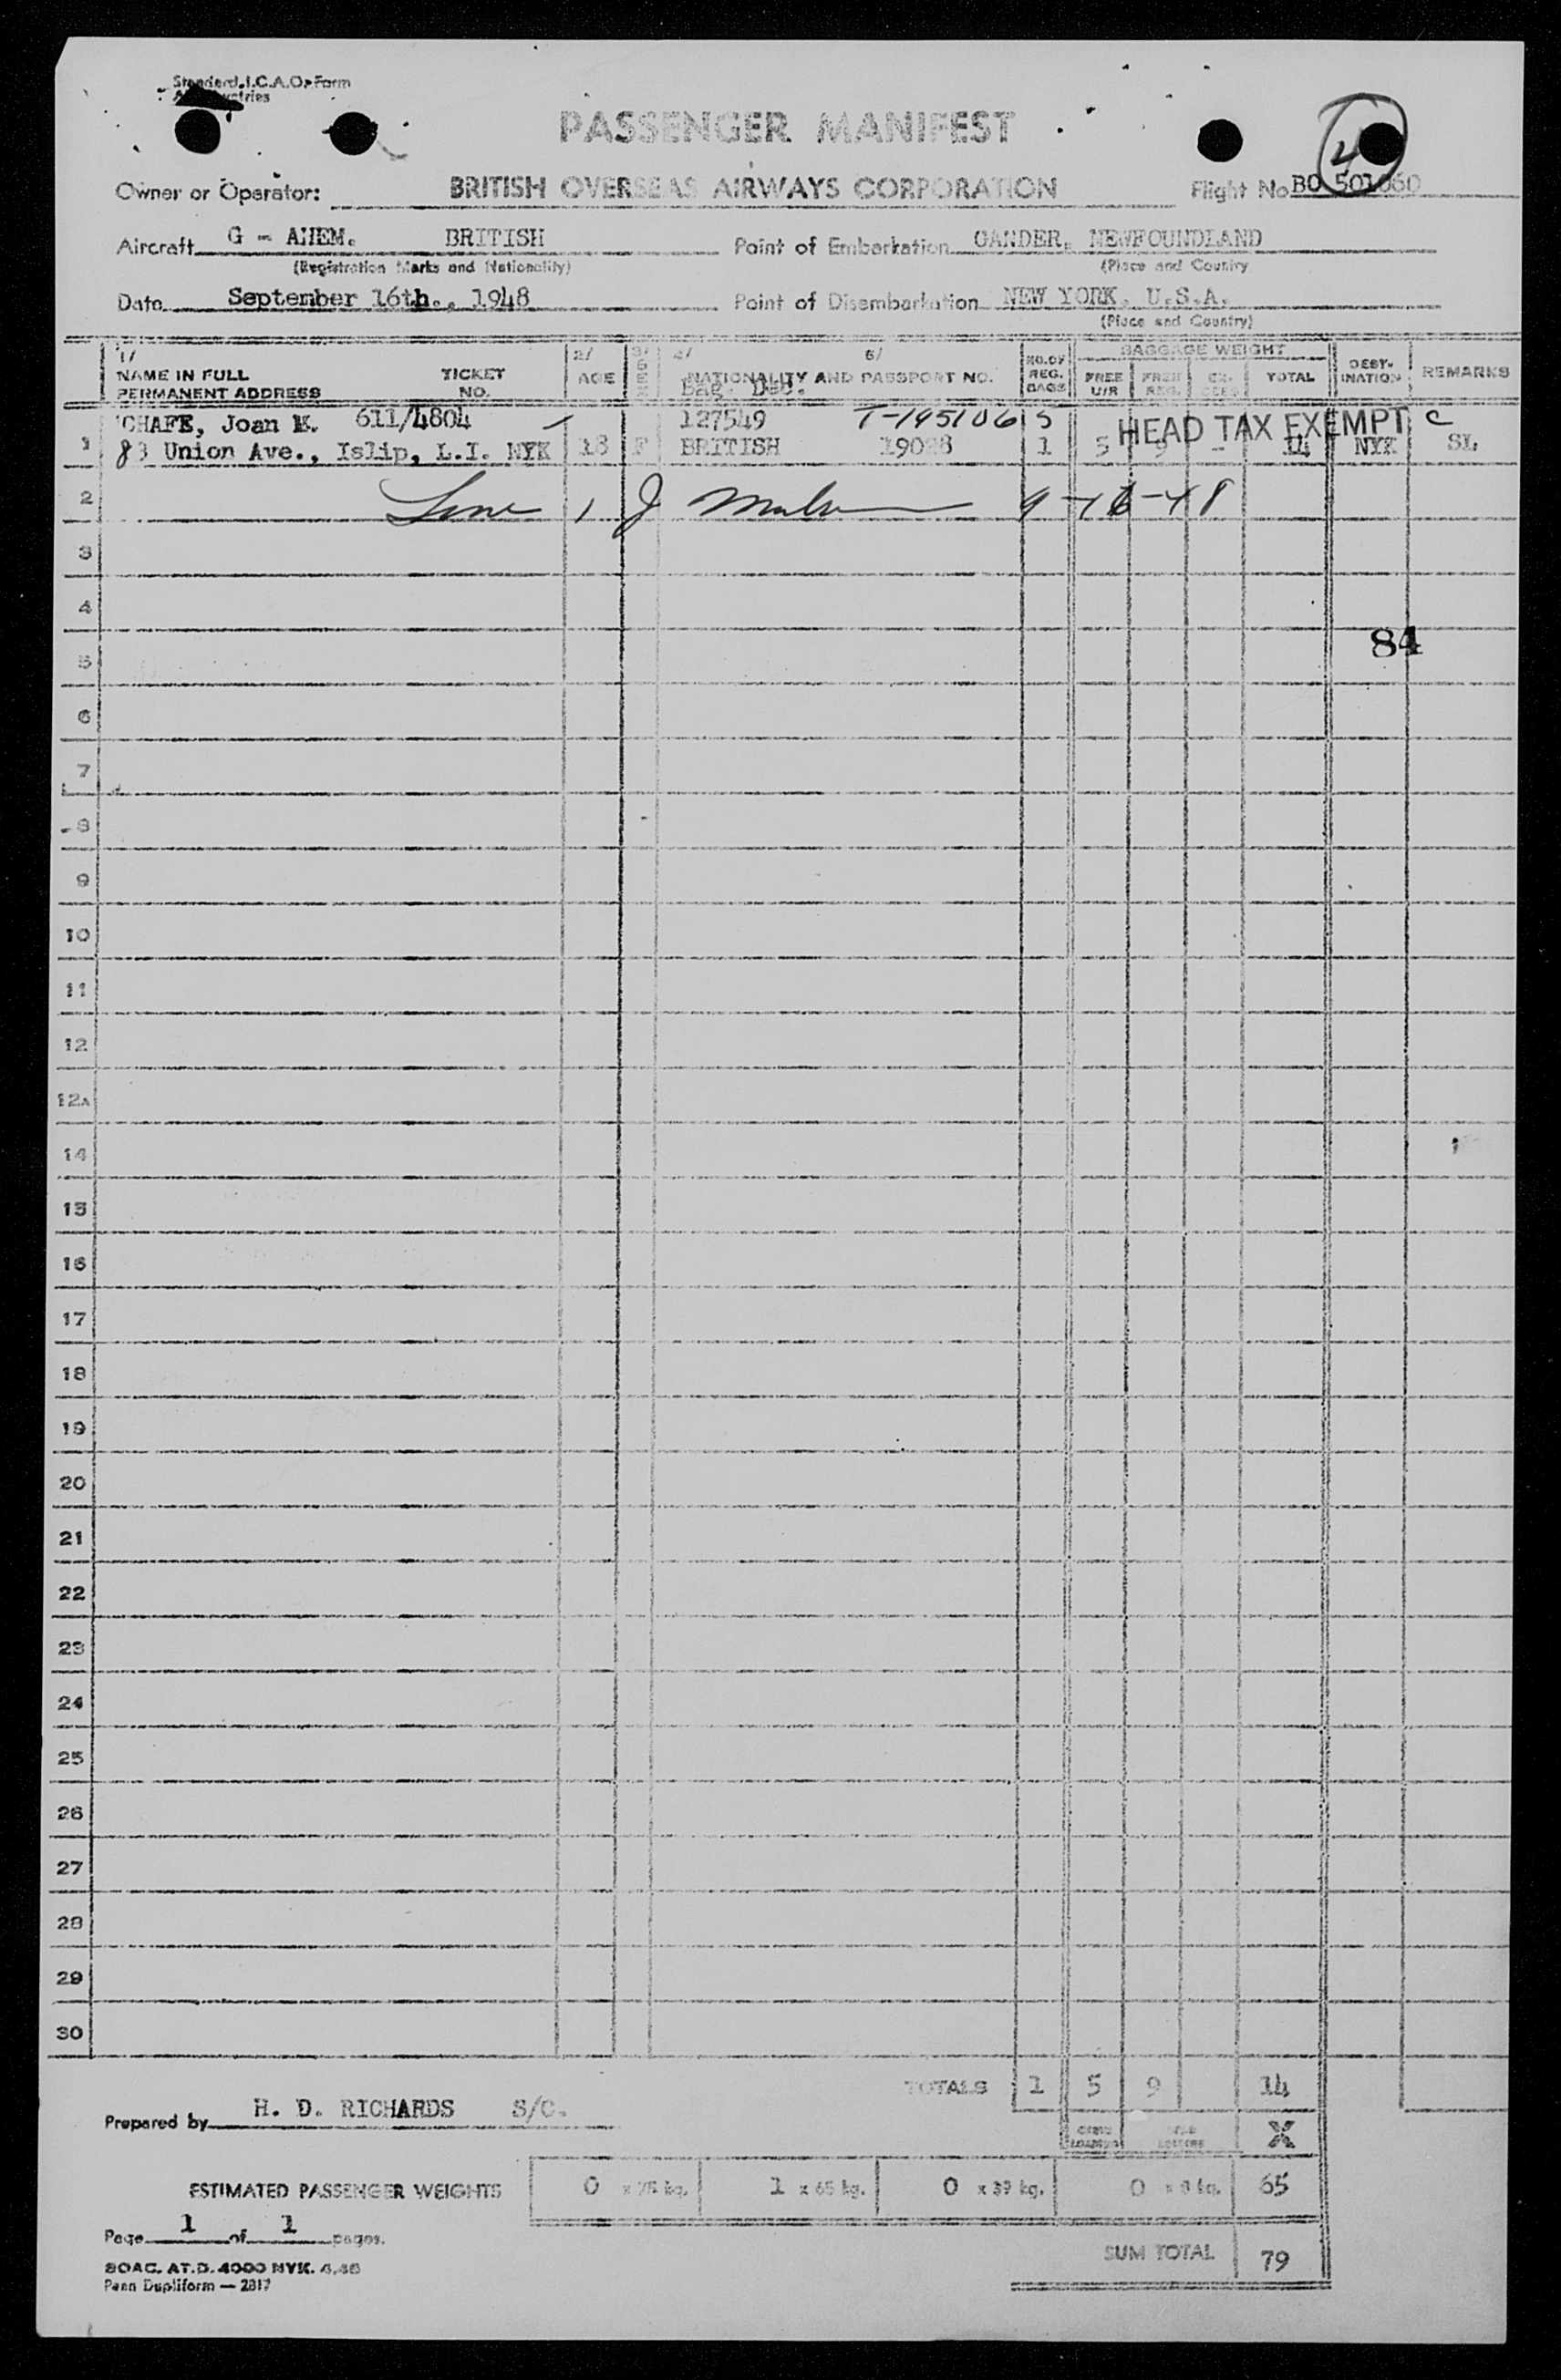 Standard I.C.A.O. Form
PASSENGER MANIFEST
Owner or Operator: BRITISH OVERSEAS AIRWAYS CORPORATION Flight No BO 501060
Aircraft G - AHEM. BRITISH Point of Embarkation GANDER, NEWFOUNDLAND
(Registration Marks and Nationality) (Place and Country
Date September 16th., 1948 Point of Disembarkation NEW YORK, U.S.A.
(Place and Country)
1/ 2/ 3/ 4/ 5/ NO. OF REG. BAGS BAGGAGE WEIGHT DEST- INATION REMARKS
NAME IN FULL TICKET AGE SEX NATIONALITY AND PASSPORT NO. FREE U/R FREE REG. EX- CESS TOTAL
PERMANENT ADDRESS NO. Bag. Dec.
CHAFE, Joan E. 611/4804 127549 T-1495106 S HEAD TAX EXEMPT C
1 83 Union Ave., Islip, L.I. NYK 18 F BRITISH 1 5 9 - 14 NYK SL
2 Line 1 J 9-16-48
3
4
84
5
6
7
8
9
10
11
12
12A
14
15
16
17
18
19
20
21
22
23
24
25
26
27
28
29
30
TOTALS 1 5 9 14
Prepared by H. D. RICHARDS S/C.
X
ESTIMATED PASSENGER WEIGHTS 0 x 75 kg. 1 x 65 kg. 0 x 39 kg. 0 x 8 kg. 65
Page 1 of 1 pages.
SUM TOTAL 79
BOAC. AT.D. 4000 NYK. 4.48
Penn Dupliform — 2817